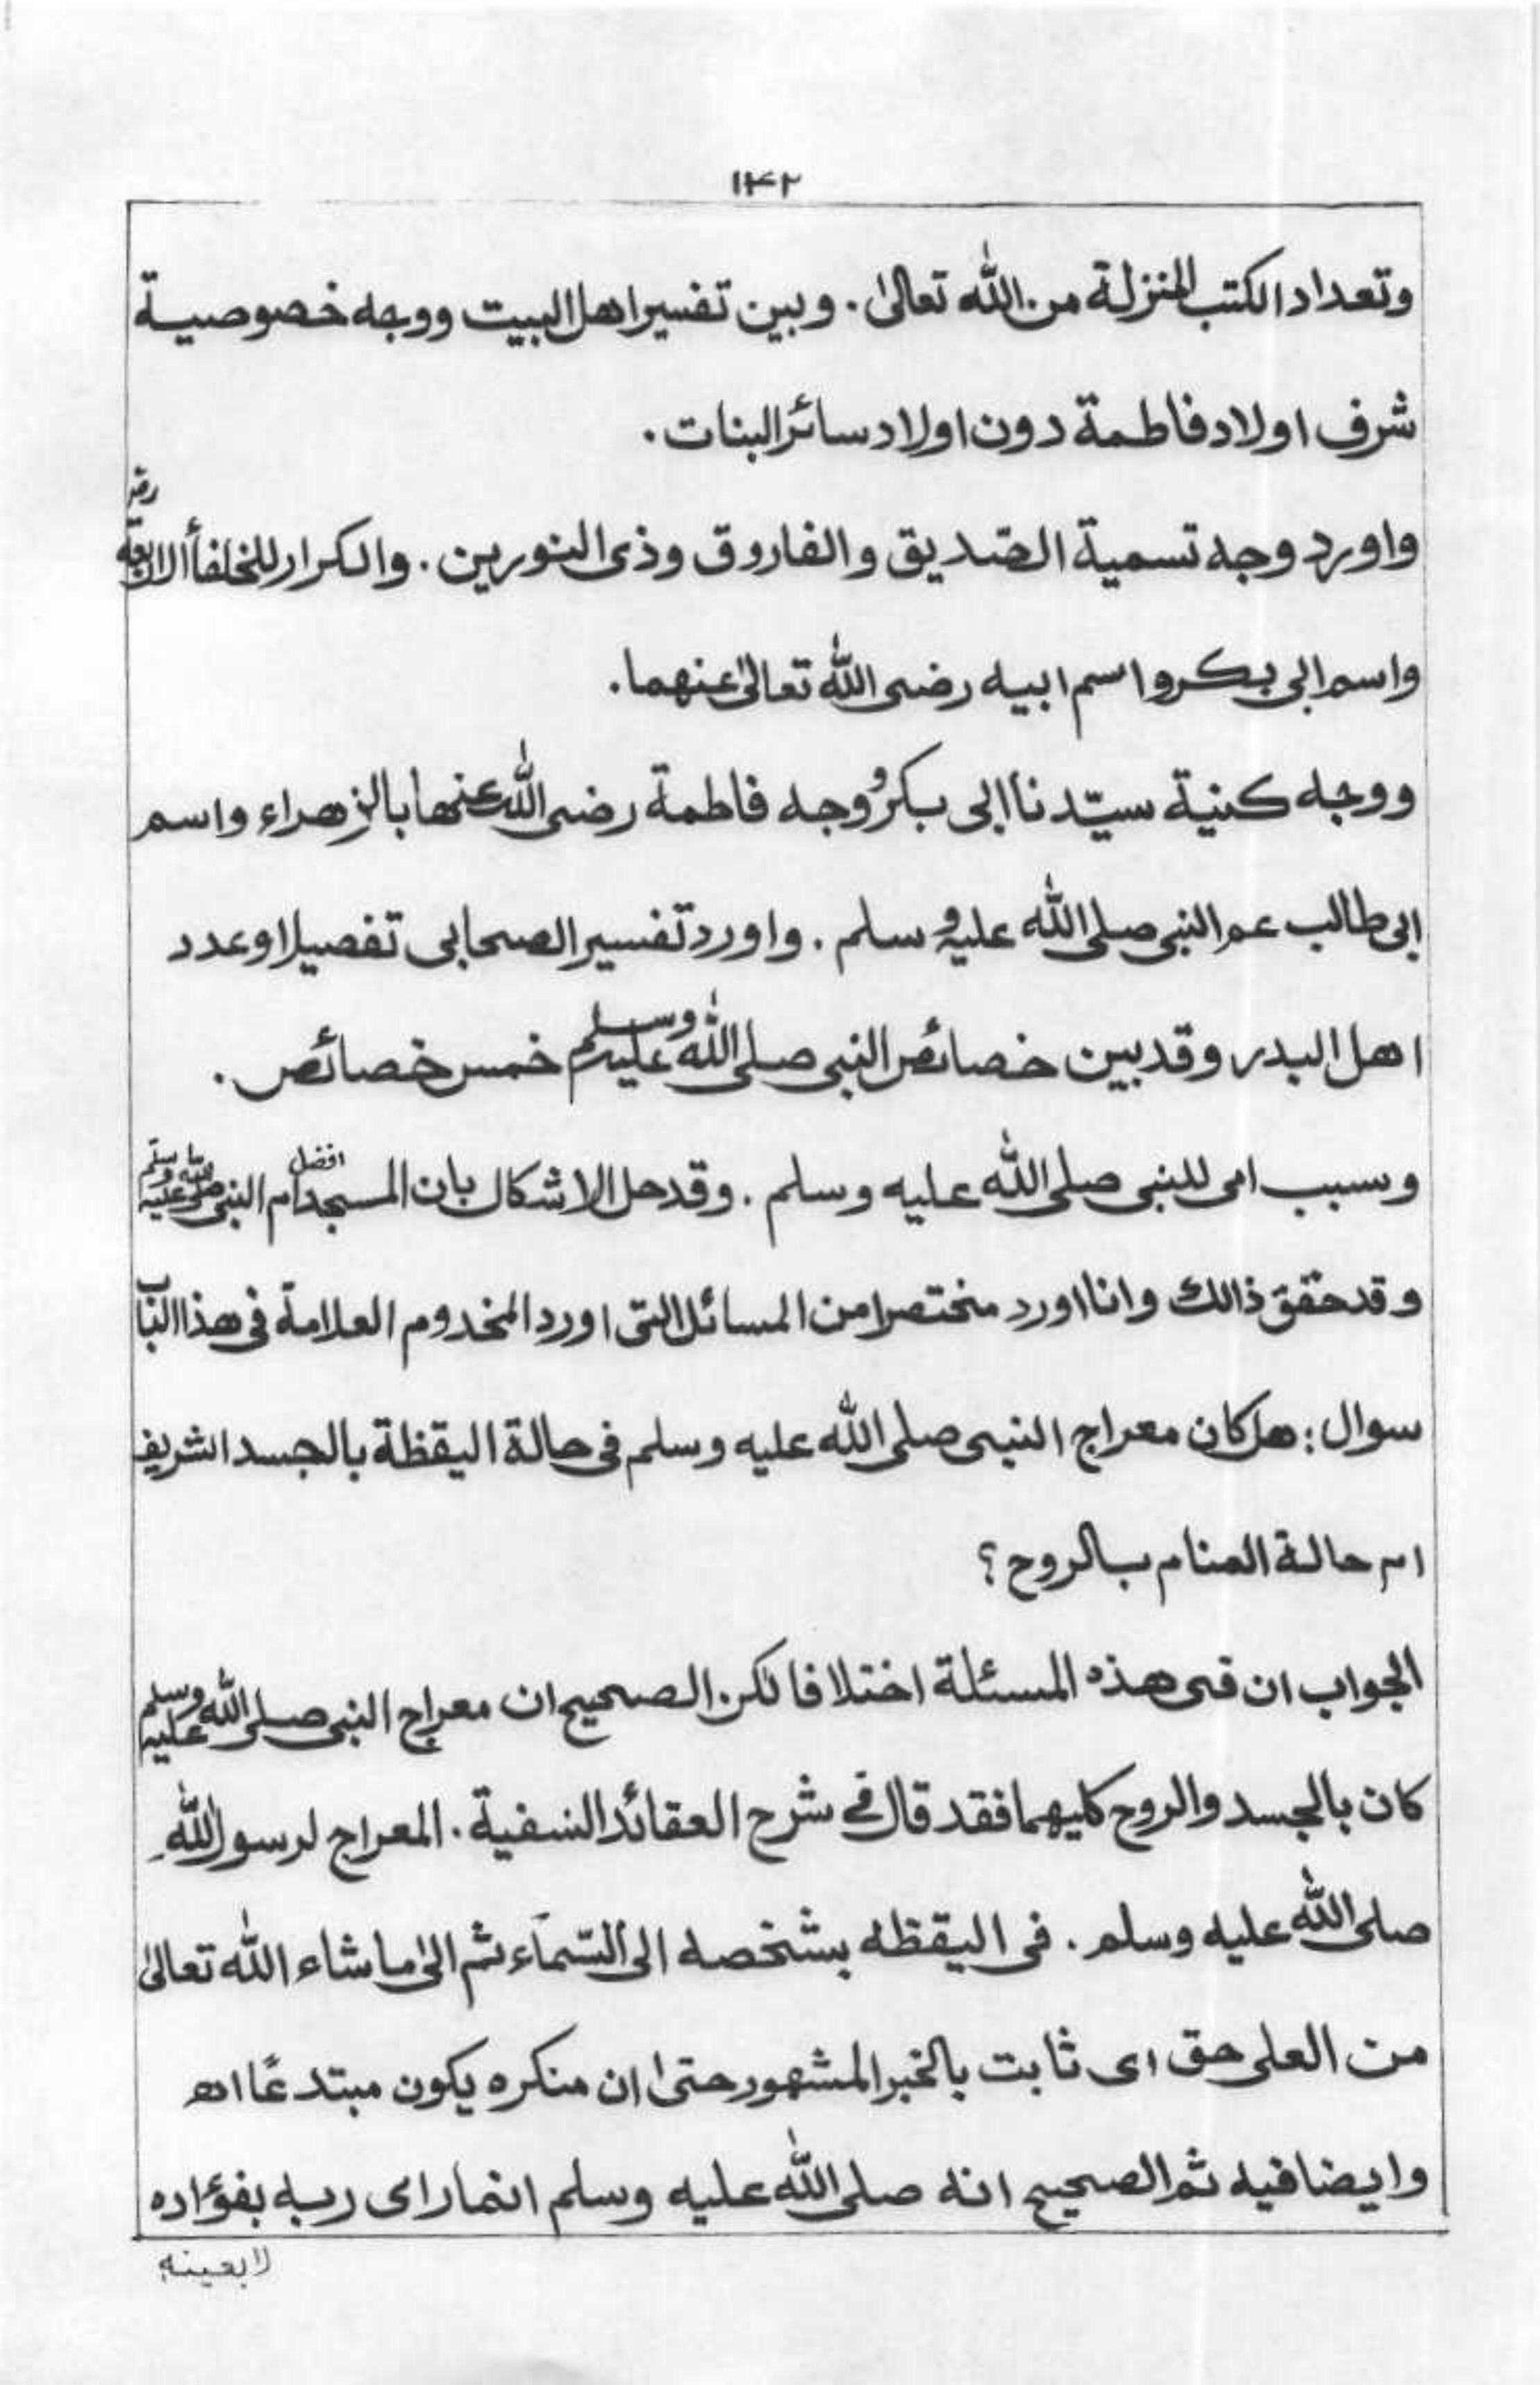 ۱۴۲
وتعداد الكتب المنزلة من الله تعالىٰ. وبين تفسير اهل البيت ووجه خصوصية
شرف اولاد فاطمة دون اولاد سائر البنات.
واورد وجه تسمية الصّديق والفاروق وذى النورين. والكرار للخلفأ الاربعة رضـ
واسم ابى بكر واسم ابيه رضى الله تعالىٰ عنهما.
ووجه كنية سيّدنا ابى بكر ووجه فاطمة رضى الله عنها بالزهراء واسم
ابى طالب عم النبى صلى الله عليه وسلم. واورد تفسير الصحابى تفصيلا وعدد
اهل البدر وقد بين خصائص النبى صلى الله عليه وسلم خمس خصائص.
وسبب امى للنبى صلى الله عليه وسلم. وقد حل الاشكال بان المسجد افضل ام النبى صلى الله عليه وسلم
وقد حقق ذالك وانا اورد مختصرا من المسائل التى اورد المخدوم العلامة فى هذا الباب
سوال: هل كان معراج النبى صلى الله عليه وسلم فى حالة اليقظة بالجسد الشريف
ام حالة المنام بالروح؟
الجواب ان فى هذه المسئلة اختلافا لكن الصحيح ان معراج النبى صلى الله عليه وسلم
كان بالجسد والروح كليهما فقد قال فى شرح العقائد النسفية. المعراج لرسول اللهِ
صلى الله عليه وسلم. فى اليقظه بشخصه الى السّمآء ثم الىٰ ماشاء الله تعالىٰ
من العلى حق اى ثابت بالخبر المشهور حتىٰ ان منكره يكون مبتدعًا اهـ
وايضا فيه ثم الصحيح انه صلى الله عليه وسلم انما راى ربه بفؤاده
لا بعينه